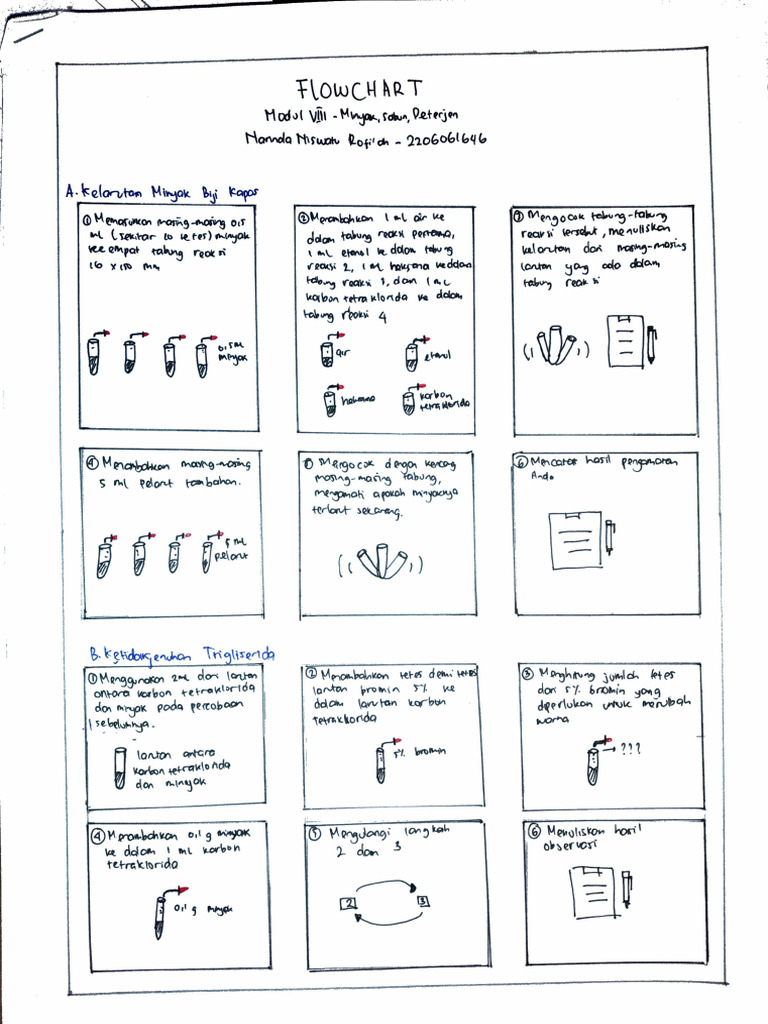 FLOWCHART
Modul VIII - Minyak, Sabun, Deterjen
Narinda Niswatu Rofi'ah - 2206061646
A. Kelarutan Minyak Biji Kapas
① Memasukkan masing-masing 0,5
mL (sekitar 10 tetes) minyak
ke empat tabung reaksi
16 x 150 mm
0,5 mL
minyak
② Menambahkan 1 mL air ke
dalam tabung reaksi pertama,
1 mL etanol ke dalam tabung
reaksi 2, 1 mL heksana ke dalam
tabung reaksi 3, dan 1 mL
karbon tetraklorida ke dalam
tabung reaksi 4
air
etanol
heksana
karbon
tetraklorida
③ Mengocok tabung-tabung
reaksi tersebut, menuliskan
kelarutan dari masing-masing
larutan yang ada dalam
tabung reaksi
④ Menambahkan masing-masing
5 mL pelarut tambahan.
5 mL
pelarut
⑤ Mengocok dengan kencang
masing-masing tabung,
mengamati apakah minyaknya
terlarut sekarang.
⑥ Mencatat hasil pengamatan
Anda
B. Ketidakjenuhan Trigliserida
① Menggunakan 2 mL dari larutan
antara karbon tetraklorida
dan minyak pada percobaan
sebelumnya.
larutan antara
karbon tetraklorida
dan minyak
② Menambahkan tetes demi tetes
larutan bromin 5% ke
dalam larutan karbon
tetraklorida
5% bromin
③ Menghitung jumlah tetes
dari 5% bromin yang
diperlukan untuk merubah
warna
???
④ Menambahkan 0,1 g minyak
ke dalam 1 mL karbon
tetraklorida
0,1 g minyak
⑤ Mengulangi langkah
2 dan 3
2 3
⑥ Menuliskan hasil
observasi